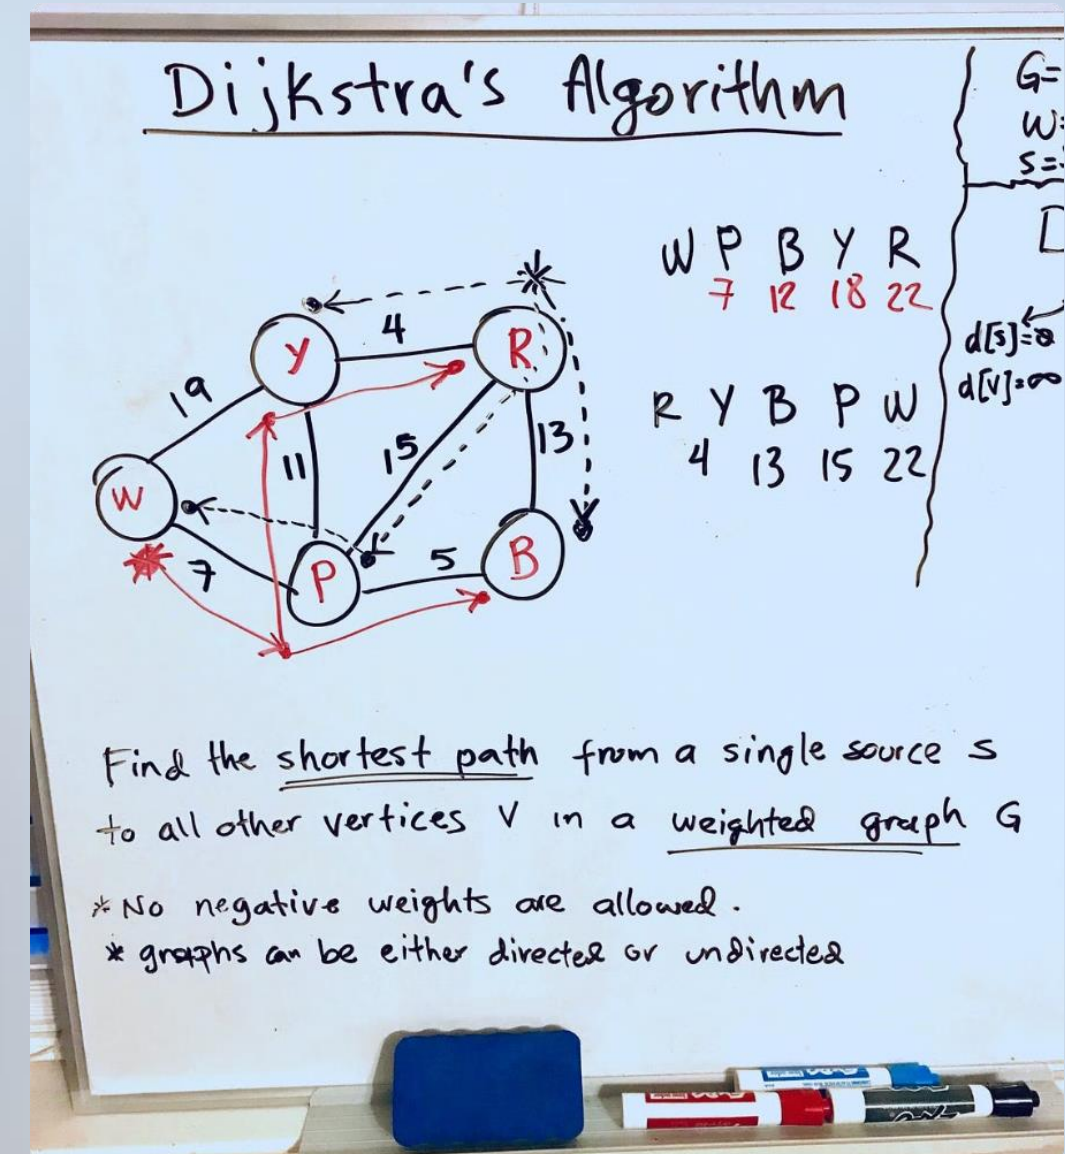 Dijkstra's Algorithm
G=
W=
S=
W P B Y R
7 12 18 22
d[s]=0
d[v]=∞
R Y B P W
4 13 15 22
Y
4
R
19
11
15
13
W
7
P
5
B
Find the shortest path from a single source s
to all other vertices V in a weighted graph G
* No negative weights are allowed.
* graphs can be either directed or undirected